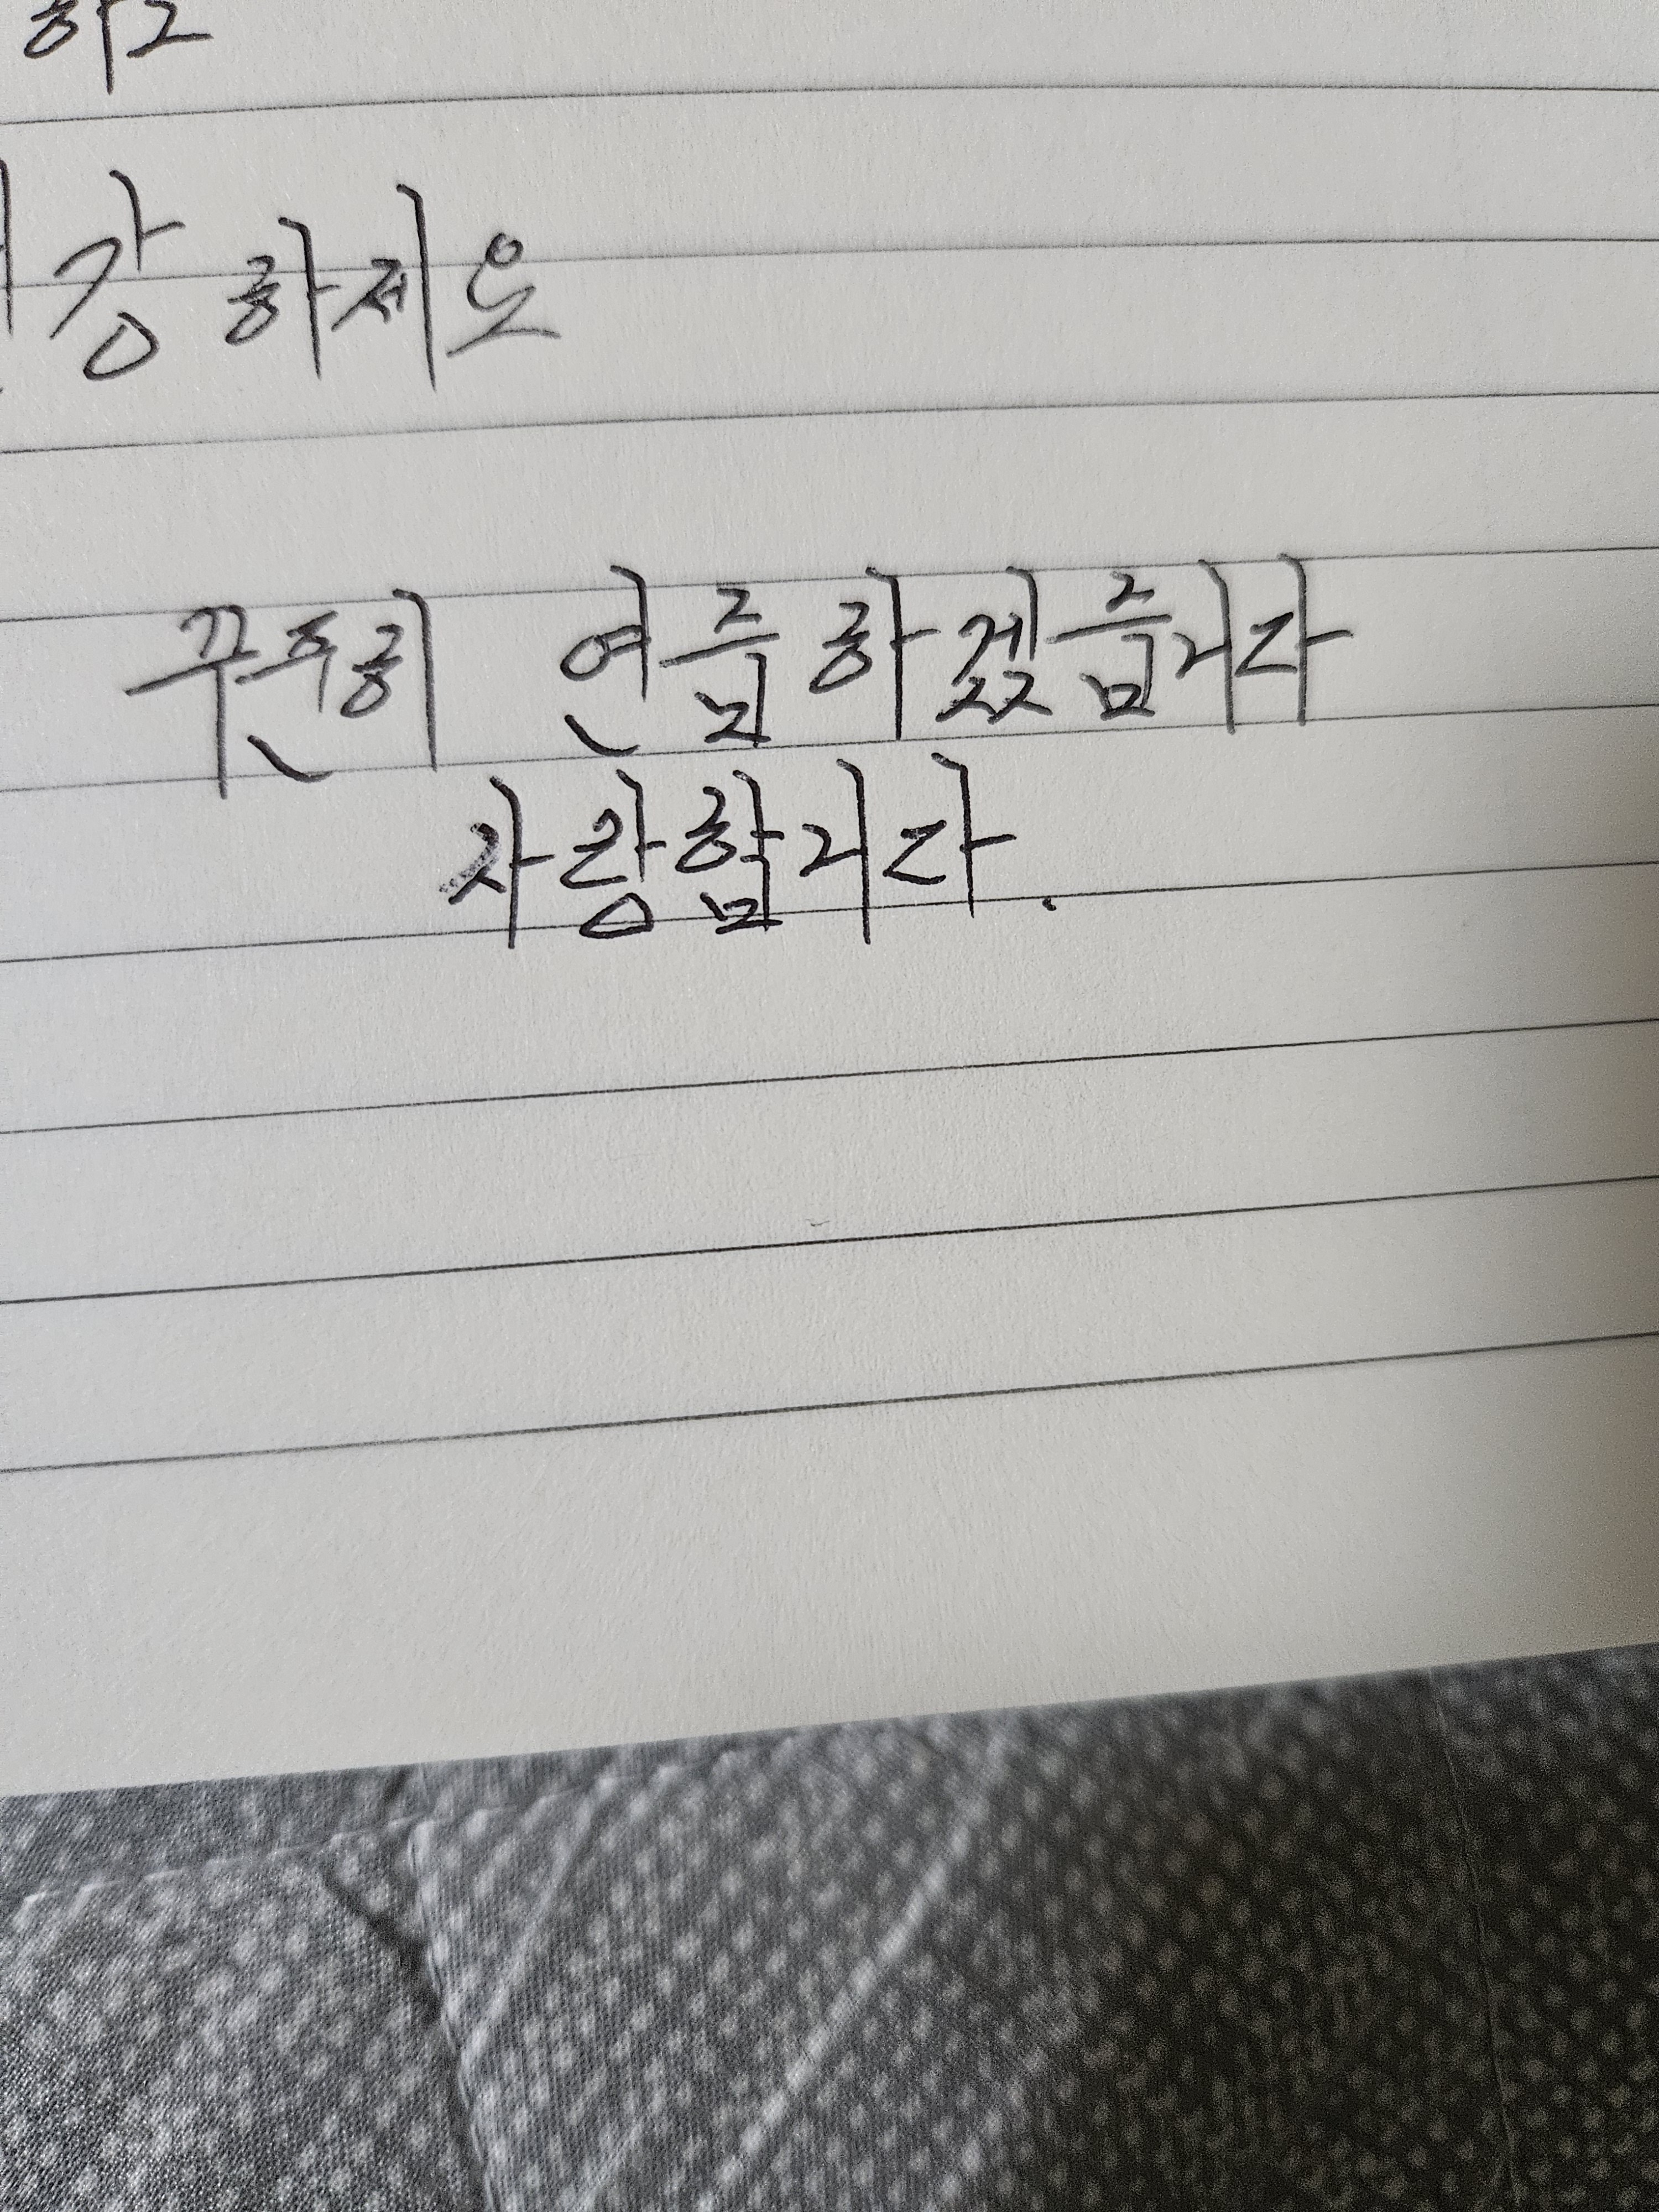 하고
강하세요
꾸준히 연습하겠습니다
사랑합니다.